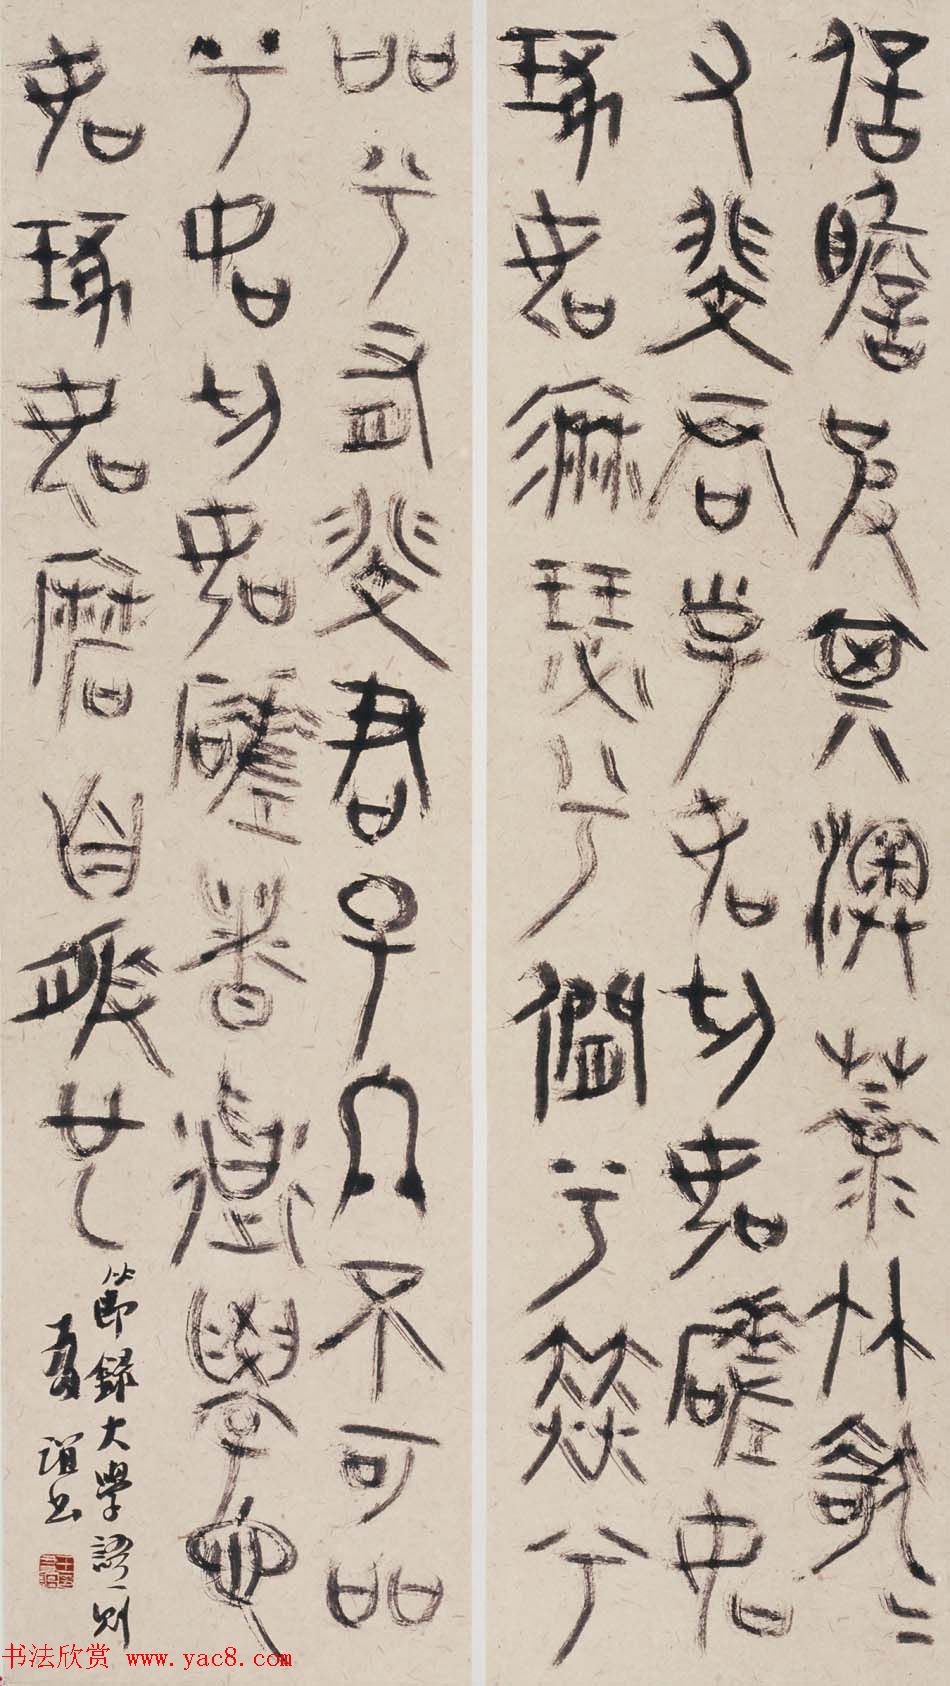 瞻彼其澳菉竹猗二
又斐君子如切如磋如
琢如磨瑟兮僩兮赫兮
吅兮有斐君子終不可吅
兮如切如磋者道學也
如琢如磨者自修也
節錄大學語一則
誼書
书法欣赏 www.yac8.com